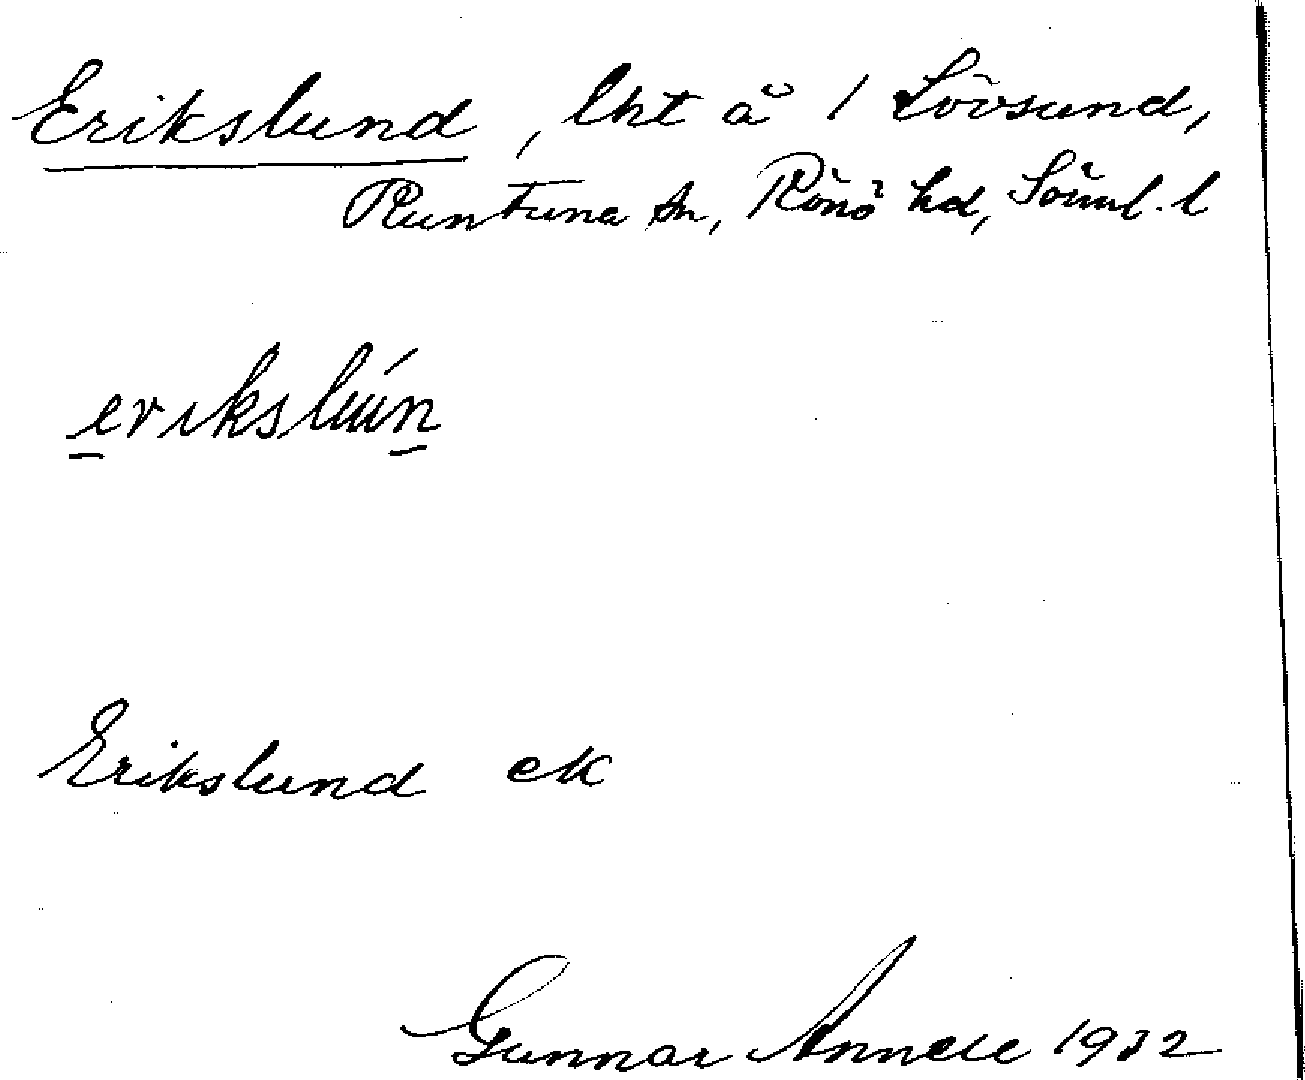 Erikslund, lht å 1 Lövsund,
Runtuna sn, Rönö hd, Söml. l
erikslún
Erikslund ek
Gunnar Annell 1932